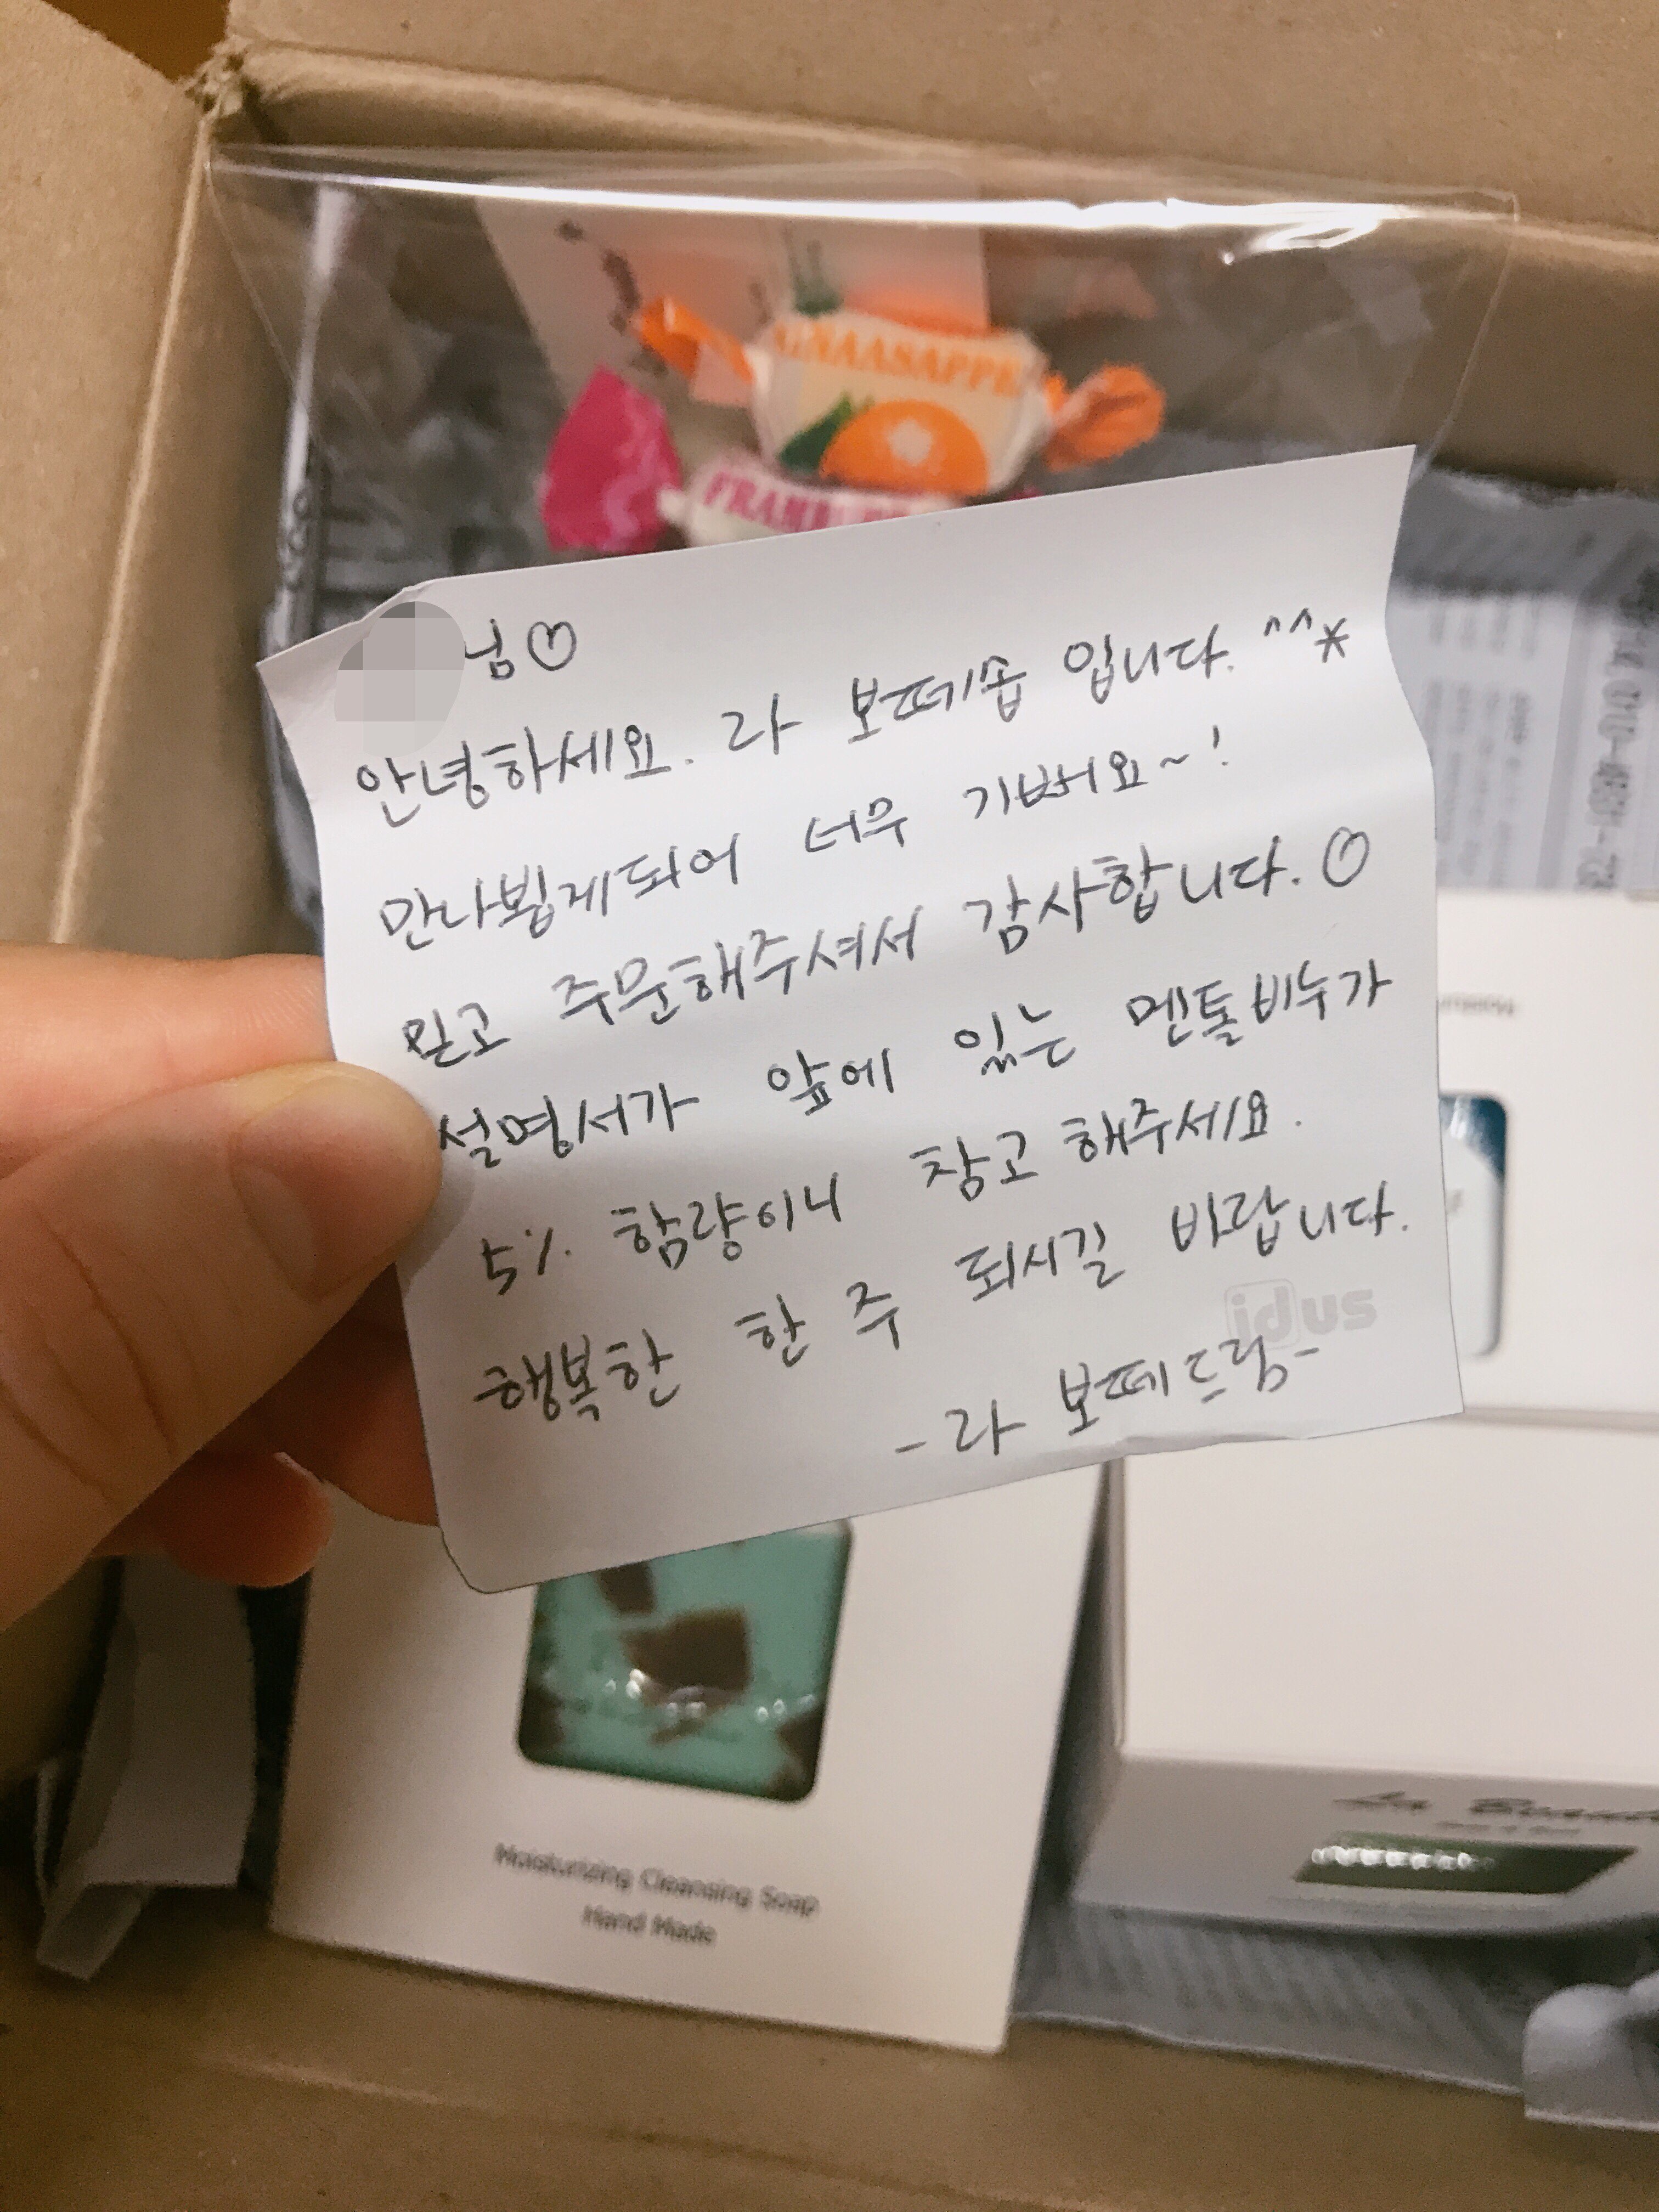 님♡
안녕하세요. 라 보떼솝 입니다. ^^*
만나뵙게되어 너무 기뻐요~!
믿고 주문해주셔서 감사합니다.♡
설명서가 앞에 있는 멘톨비누가
5% 함량이니 참고해주세요.
행복한 한 주 되시길 바랍니다.
idus
-라 보떼드림-
Moisturizing Cleansing Soap
Hand Made